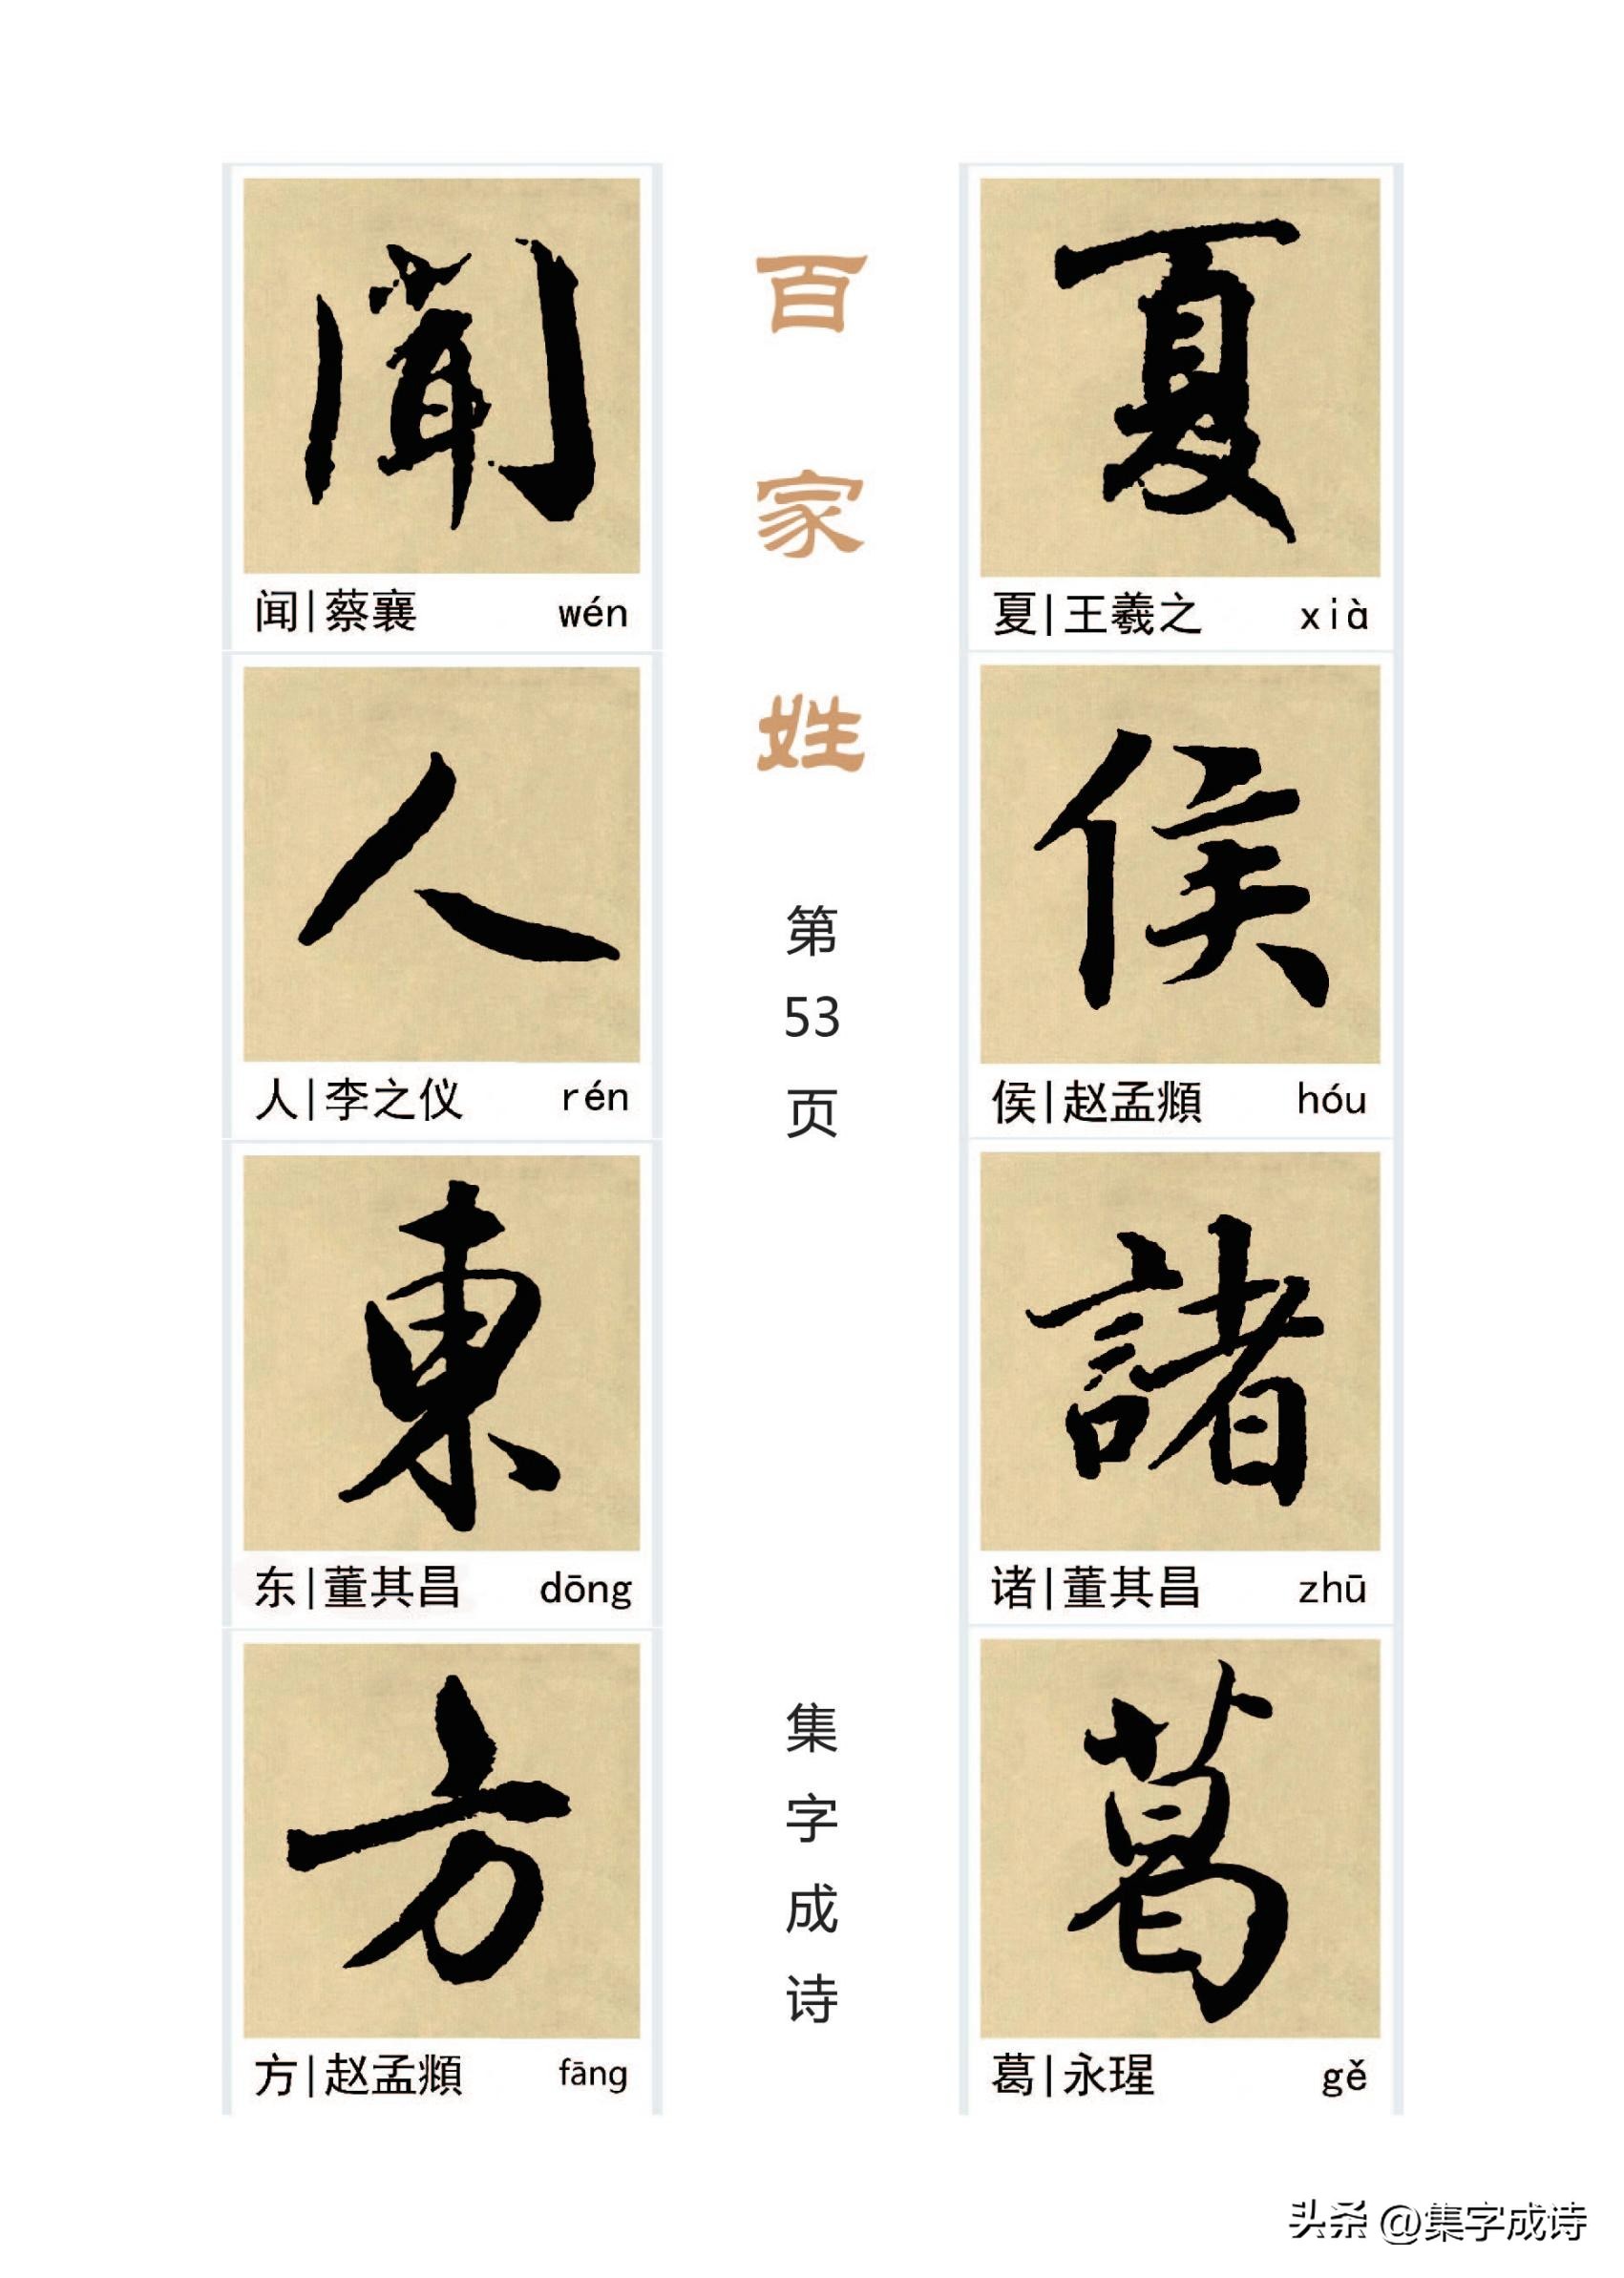 夏
夏|王羲之 xià
侯
侯|赵孟頫 hóu
諸
诸|董其昌 zhū
葛
葛|永瑆 gě
百家姓
第53页
集字成诗
聞
闻|蔡襄 wén
人
人|李之仪 rén
東
东|董其昌 dōng
方
方|赵孟頫 fāng
头条 @集字成诗